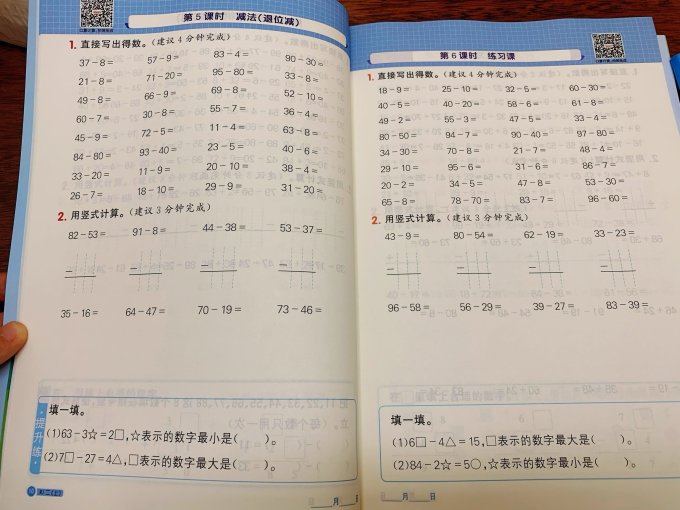 第5课时 减法(退位减)
1. 直接写出得数。(建议4分钟完成)
37-8= 57-9= 83-4= 90-30=
21-8= 71-20= 95-80= 33-8=
49-8= 66-9= 69-8= 52-10=
60-7= 30-8= 55-7= 36-4=
45-9= 72-5= 11-4= 63-8=
84-80= 93-40= 23-5= 40-6=
33-20= 11-9= 20-10= 38-4=
26-7= 18-10= 29-9= 31-20=
2. 用竖式计算。(建议3分钟完成)
82-53= 91-8= 44-38= 53-37=
35-16= 64-47= 70-19= 73-46=
提升练
填一填。
(1)63-3☆=2□,☆表示的数字最小是( )。
(2)7□-27=4△,□表示的数字最大是( )。
月 日
第6课时 练习课
1. 直接写出得数。(建议4分钟完成)
18-9= 25-10= 32-5= 60-30=
40-5= 40-20= 58-6= 61-8=
49-2= 55-3= 47-5= 33-4=
80-50= 94-7= 90-40= 97-80=
34-30= 70-8= 21-7= 48-4=
29-10= 95-6= 31-6= 86-7=
20-2= 34-5= 47-8= 53-30=
65-8= 78-70= 83-7= 96-60=
2. 用竖式计算。(建议3分钟完成)
43-9= 80-54= 62-19= 33-23=
96-58= 56-29= 39-27= 83-39=
填一填。
(1)6□-4△=15,□表示的数字最大是( )。
(2)84-2☆=5○,☆表示的数字最小是( )。
月 日